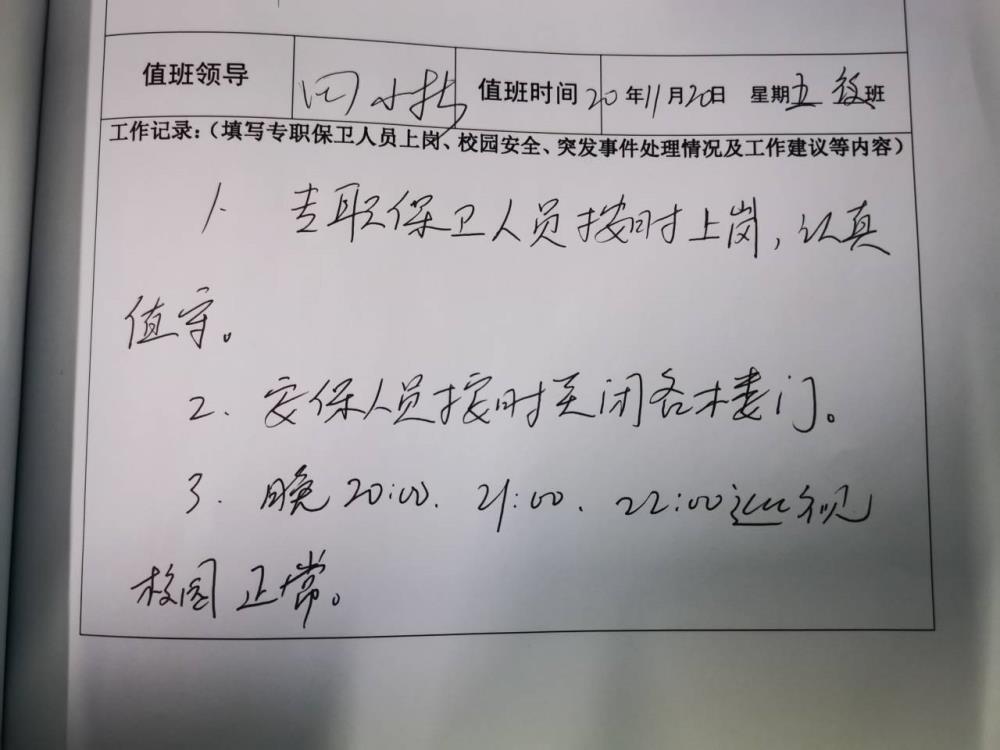 值班领导 田小 值班时间 20年11月20日 星期五 班
工作记录：（填写专职保卫人员上岗、校园安全、突发事件处理情况及工作建议等内容）
1. 专职保卫人员按时上岗，认真
值守。
2. 安保人员按时关闭各楼门。
3. 晚20:00、21:00、22:00巡视
校园正常。